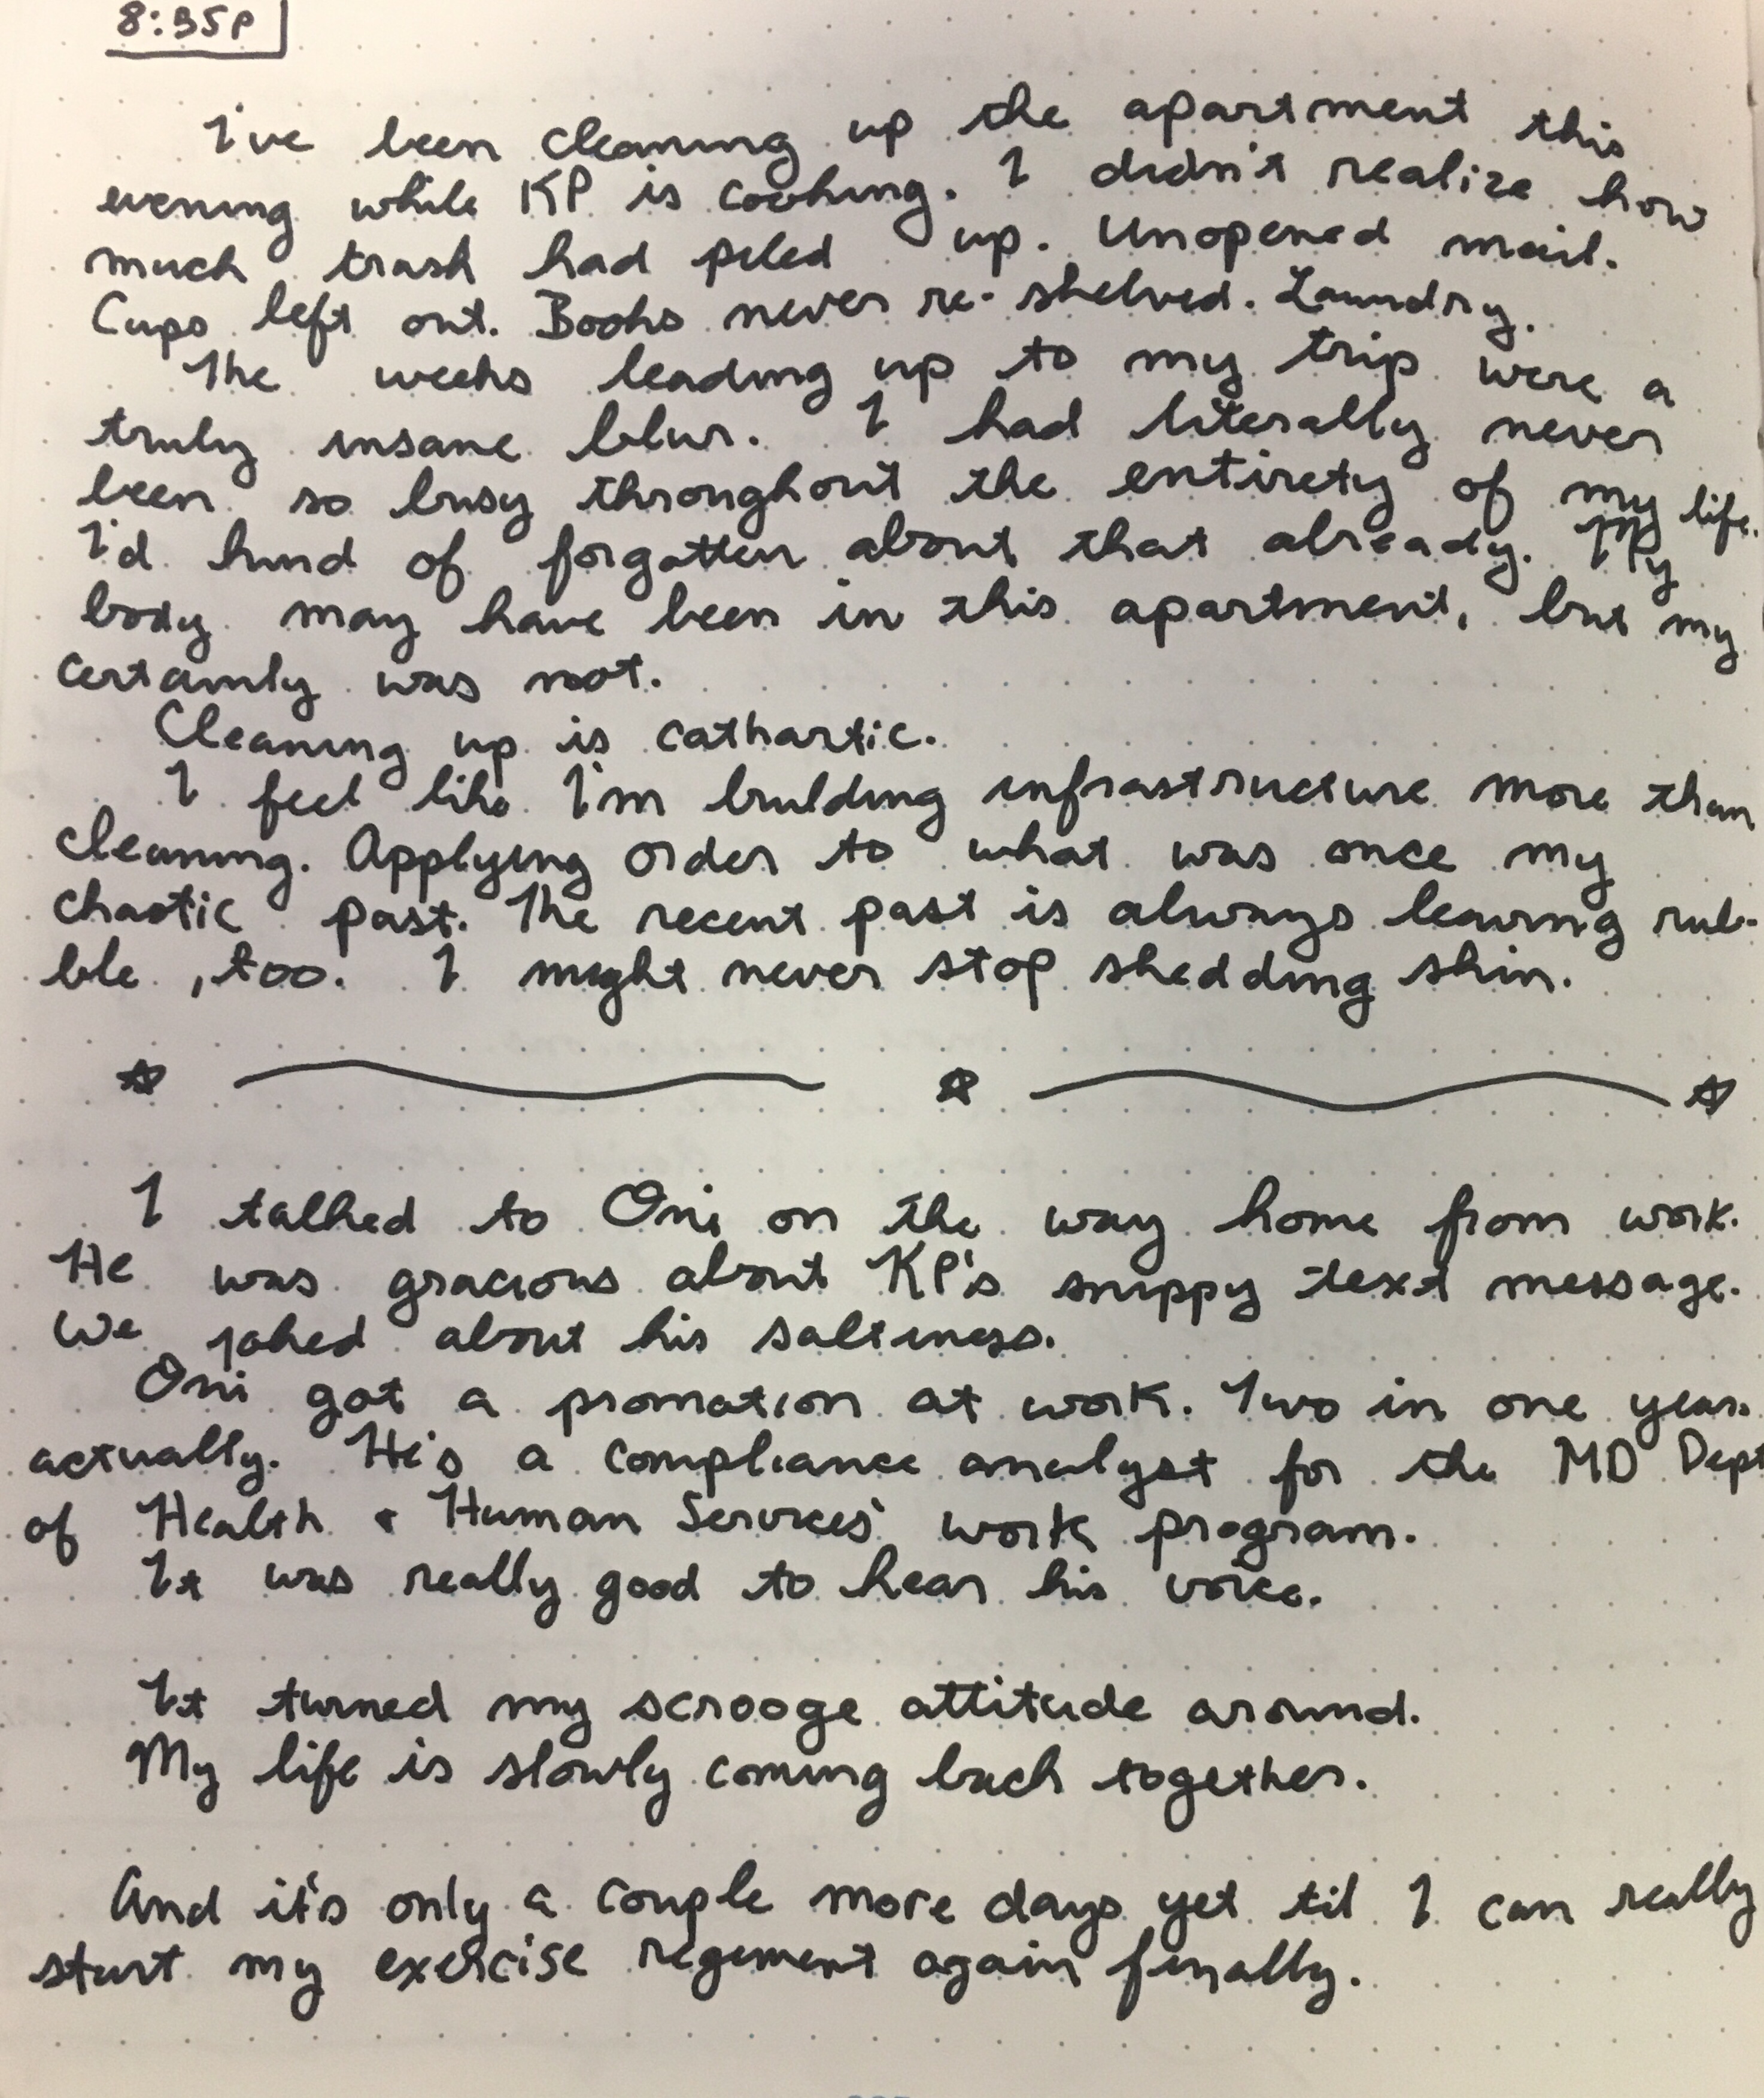 8:35p
I've been cleaning up the apartment this
evening while KP is cooking. I didn't realize how
much trash had piled up. Unopened mail.
Cups left out. Books never re-shelved. Laundry.
The weeks leading up to my trip were a
truly insane blur. I had literally never
been so busy throughout the entirety of my life.
I'd kind of forgotten about that already. My
body may have been in this apartment, but my
certainly was not.
Cleaning up is cathartic.
I feel like I'm building infrastructure more than
cleaning. Applying order to what was once my
chaotic past. The recent past is always leaving rub-
ble, too. I might never stop shedding skin.
I talked to Oni on the way home from work.
He was gracious about KP's snippy text message.
We joked about his saltiness.
Oni got a promotion at work. Two in one year.
actually. He's a compliance analyst for the MD Dept
of Health & Human Services' work program.
It was really good to hear his voice.
It turned my scrooge attitude around.
My life is slowly coming back together.
And it's only a couple more days yet til I can really
start my exercise regement again finally.